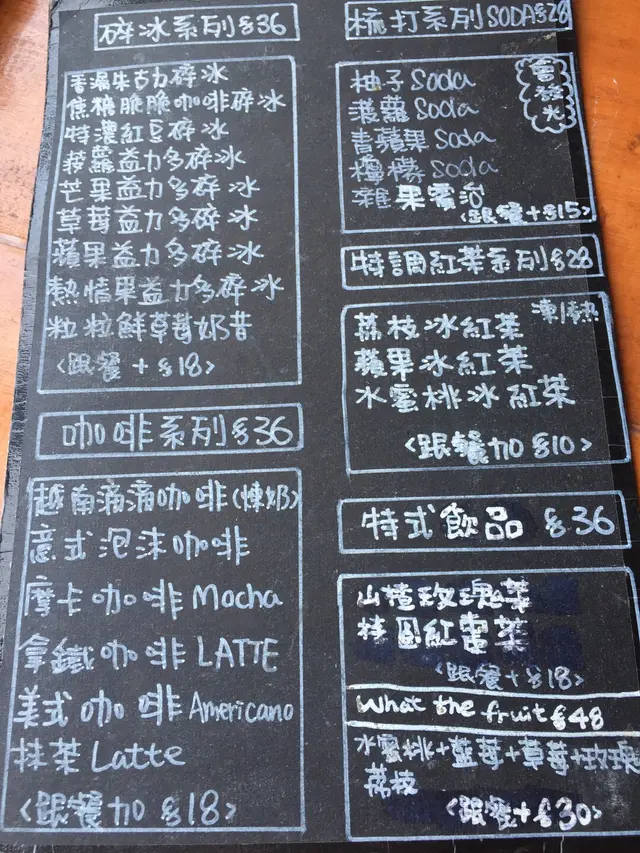 碎冰系列$36
香濃朱古力碎冰
焦糖脆脆咖啡碎冰
特濃紅豆碎冰
菠蘿益力多碎冰
芒果益力多碎冰
草莓益力多碎冰
蘋果益力多碎冰
熱情果益力多碎冰
粒粒鮮草莓奶昔
<跟餐+$18>
咖啡系列$36
越南滴滴咖啡(煉奶)
意式泡沫咖啡
摩卡咖啡Mocha
拿鐵咖啡LATTE
美式咖啡Americano
抹茶Latte
<跟餐加$18>
梳打系列SODA$28
會發火
柚子Soda
菠蘿Soda
青蘋果Soda
檸檬Soda
雜果賓治
<跟餐+$15>
特調紅茶系列$28
凍/熱
荔枝冰紅茶
蘋果冰紅茶
水蜜桃冰紅茶
<跟餐加$10>
特式飲品$36
山楂玫瑰茶
桂圓紅棗茶
<跟餐+$18>
What the fruit$48
水蜜桃+藍莓+草莓+玫瑰
荔枝
<跟餐+$30>